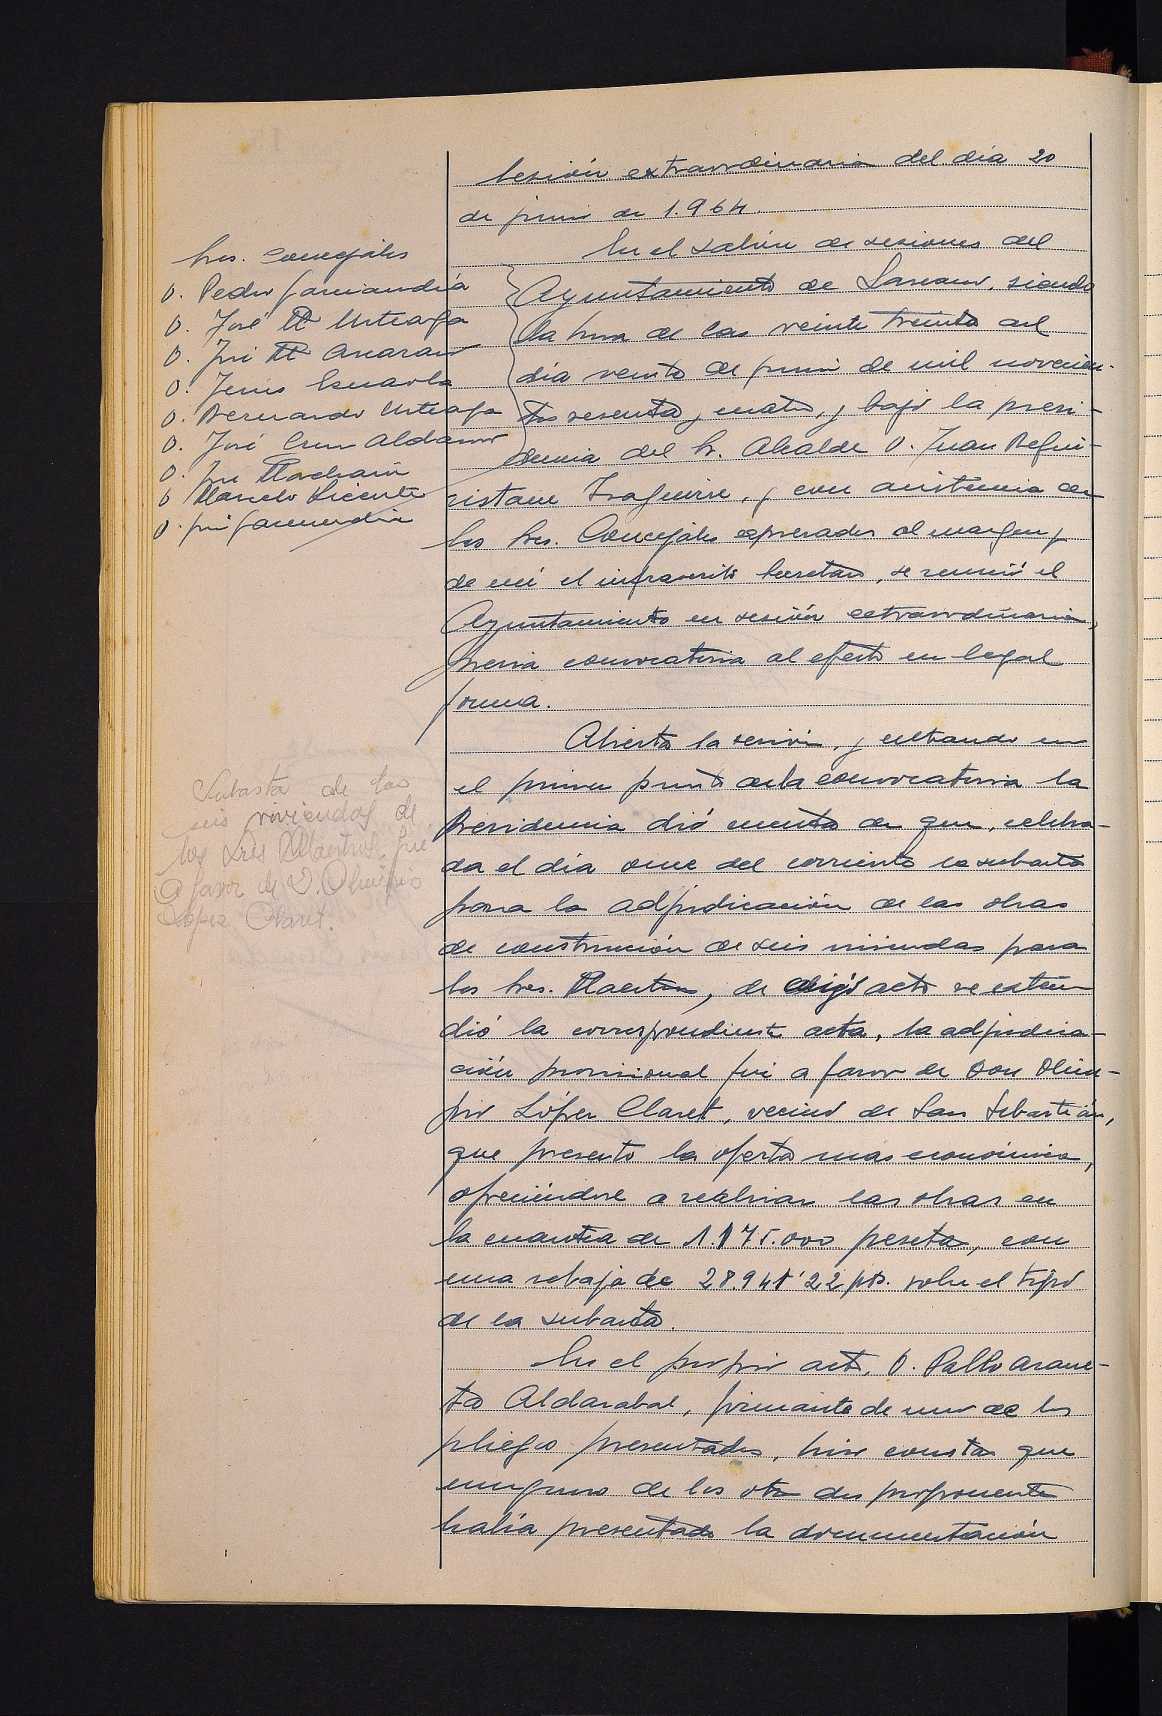 Sesión extraordinaria del día 20
de junio de 1.964.
Sres. Concejales
D. Pedro Garciandía
D. José Mª Urteaga
D. José Mª Amaran
D. Jesús Esnaola
D. Bernardo Urteaga
D. José Cruz Aldasoro
D. José Marchan
D. Marcelo Vicente
D. José Garmendia
En el salón de sesiones del
Ayuntamiento de Lazcano, siendo
la hora de las veinte treinta del
día veinte de junio de mil novecien-
tos sesenta y cuatro, y bajo la presi-
dencia del Sr. Alcalde D. Juan Begui-
ristain Izaguirre, y con asistencia de
los Sres. Concejales expresados al margen y
de mí el infrascrito Secretario, se reunió el
Ayuntamiento en sesión extraordinaria,
previa convocatoria al efecto en legal
forma.
Subasta de las
seis viviendas de
los Sres Maestros, fué
a favor de D. Olimpio
López Claret.
Abierta la sesión, y entrando en
el primer punto de la convocatoria la
Presidencia dió cuenta de que, celebra-
da el día once del corriente la subasta
para la adjudicación de las obras
de construcción de seis viviendas para
los Sres. Maestros, de cuyo acto se exten-
dió la correspondiente acta, la adjudica-
ción provisional fué a favor de Don Olim-
pio López Claret, vecino de San Sebastián,
que presentó la oferta mas económica,
ofreciéndose a realizar las obras en
la cuantía de 1.175.000 pesetas, con
una rebaja de 22 pts. sobre el tipo
de la subasta.
En el propio acto, D. Pablo Arane-
ta Aldarabal, firmante de uno de los
pliegos presentados, hizo constar que
ninguno de los otros dos proponentes
había presentado la documentación